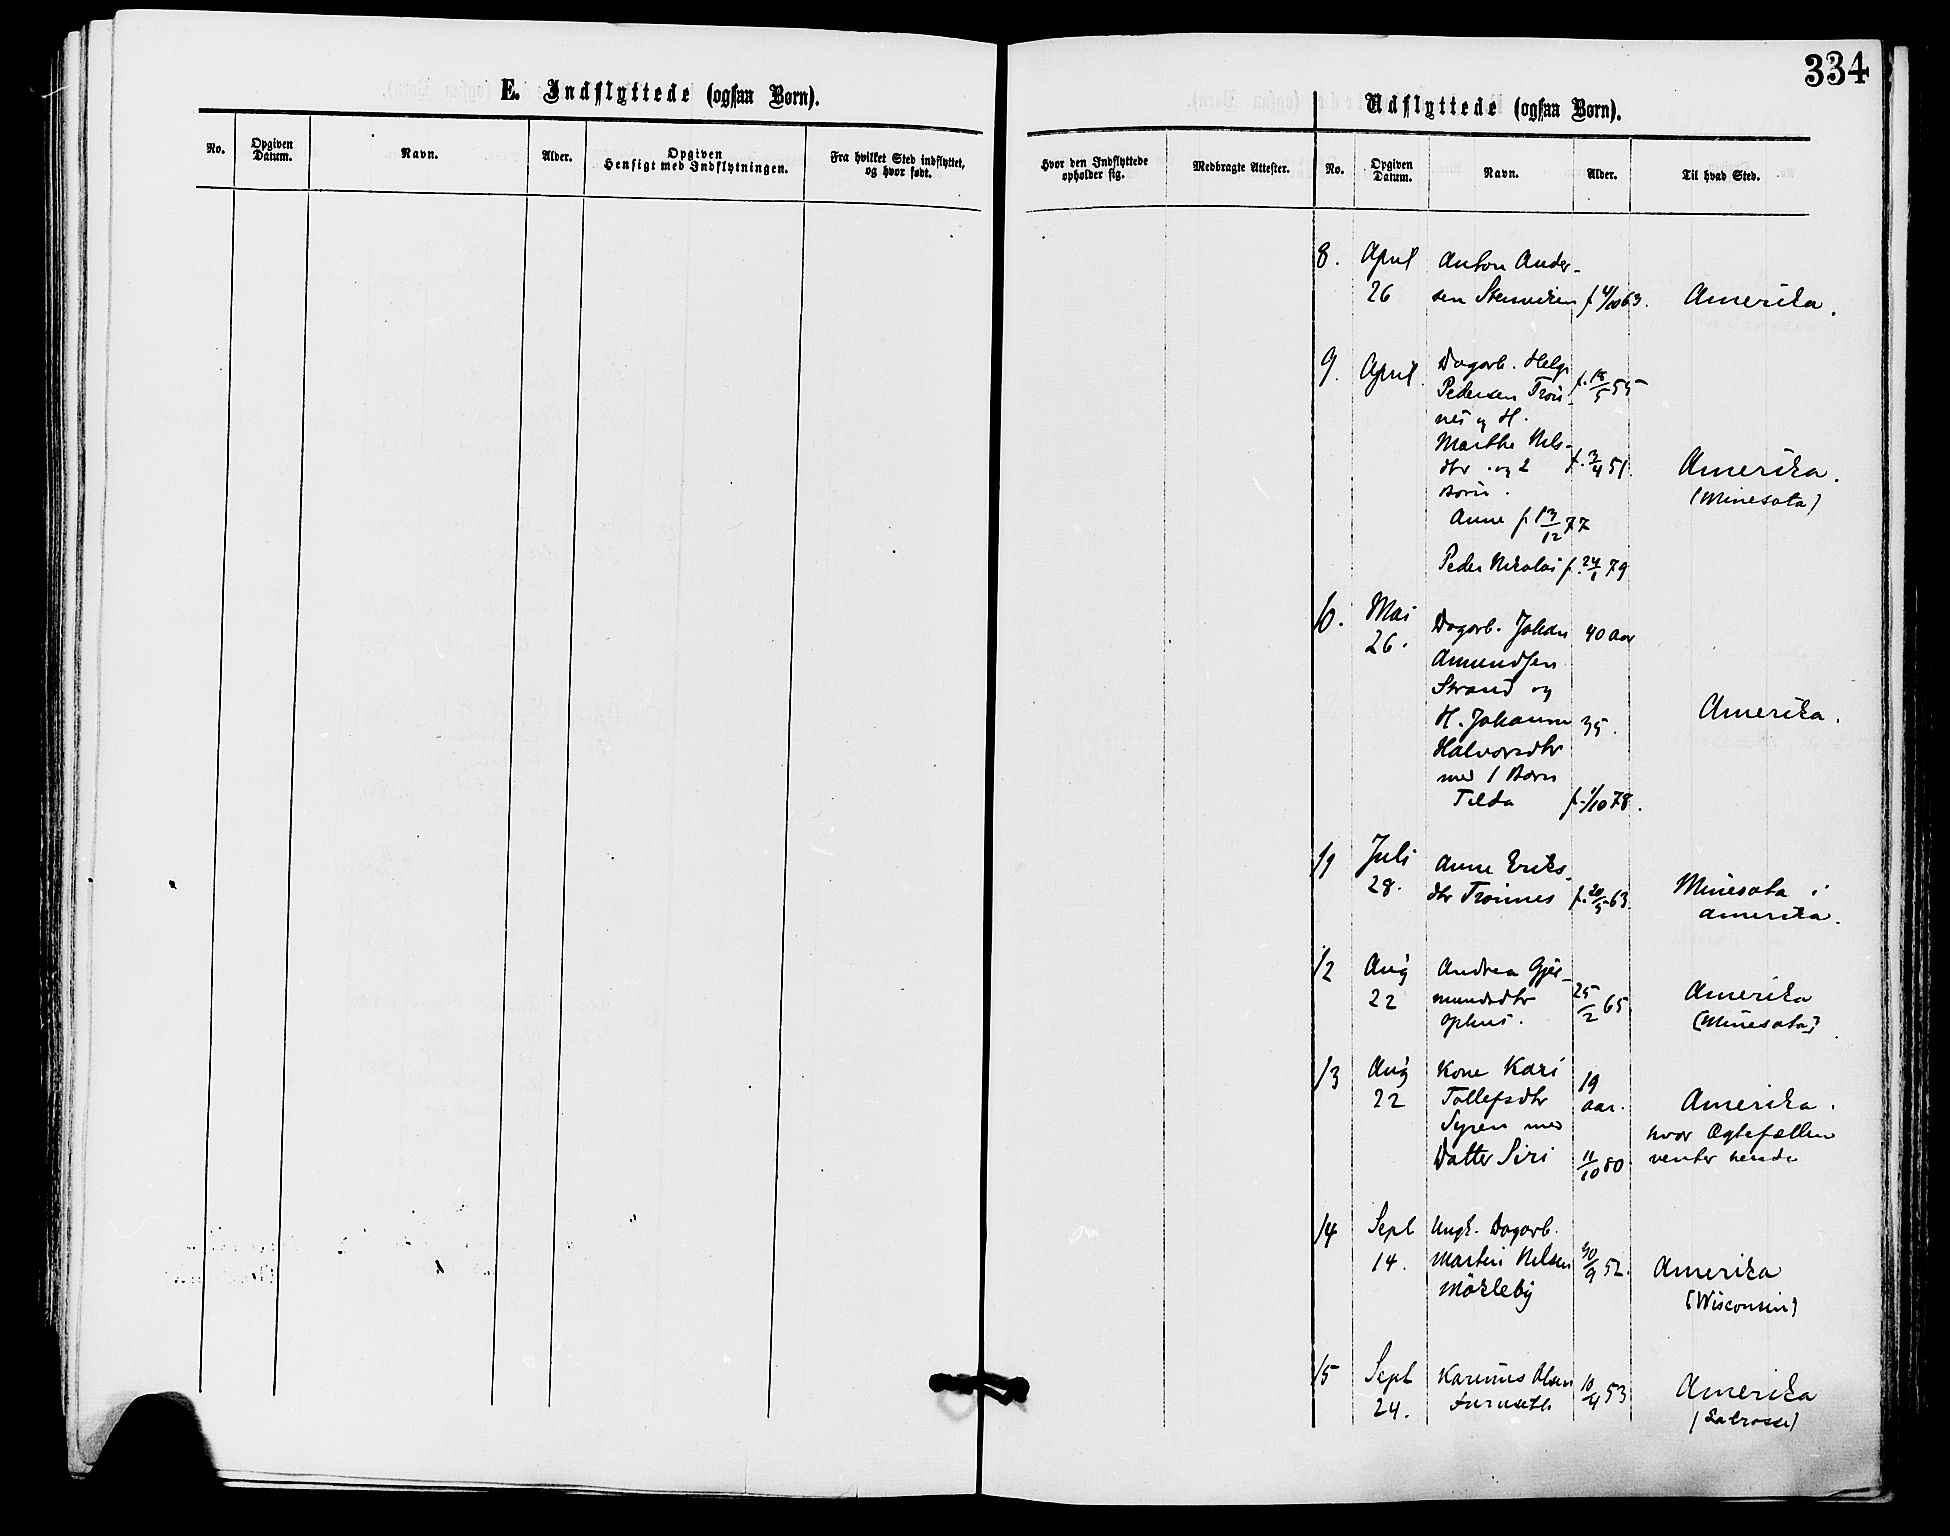 334
E. Indflyttede (ogsaa Børn).
No. Opgiven Datum. Navn. Alder. Opgiven Hensigt med Indflytningen. Fra hvilket Sted indflyttet, og hvor født.
Udflyttede (ogsaa Børn).
Hvor den Indflyttede opholder sig. Medbragte Attester. No. Opgiven Datum. Navn. Alder. Til hvad Sted.
8. April Anton Ander-
26 sen f 4/10 63. Amerika.
9. April Dagarb. Helge
Pedersen Trøn- f. 18/5 55
nes og H.
Marthe Nils-
dtr og 2 f. 3/4 51. Amerika.
Børn. (Minesota)
Anne f 13/12 77
Peder Nikolai f. 24/1 79
10. Mai Dagarb. Johan 40 aar
26. Amundsen
Strand og
H. Johanne 35. Amerika.
Halvorsdtr
med 1 Barn
Tilda f. 1/10 78.
11 Juli Anne Eriks-
28. dtr Trønnes f. 20/5 63. Minesota i
Amerika.
12 Aug Andrea Gjer-
22 mundsdtr 25/2 65. Amerika
Ophus. (Minesota)
13 Aug Kone Kari 19
22 Tollefsdtr aar. Amerika.
Syren med hvor Ægtefællen
Datter Siri 11/10 80. venter hende
14 Sept Ungk. Dagarb.
14. Martin Nilsen 30/9 52. Amerika
Møkleby (Wisconsin)
15 Sept Karinus Olsen 10/4 53 Amerika
24. Furuseth (LaCrosse)